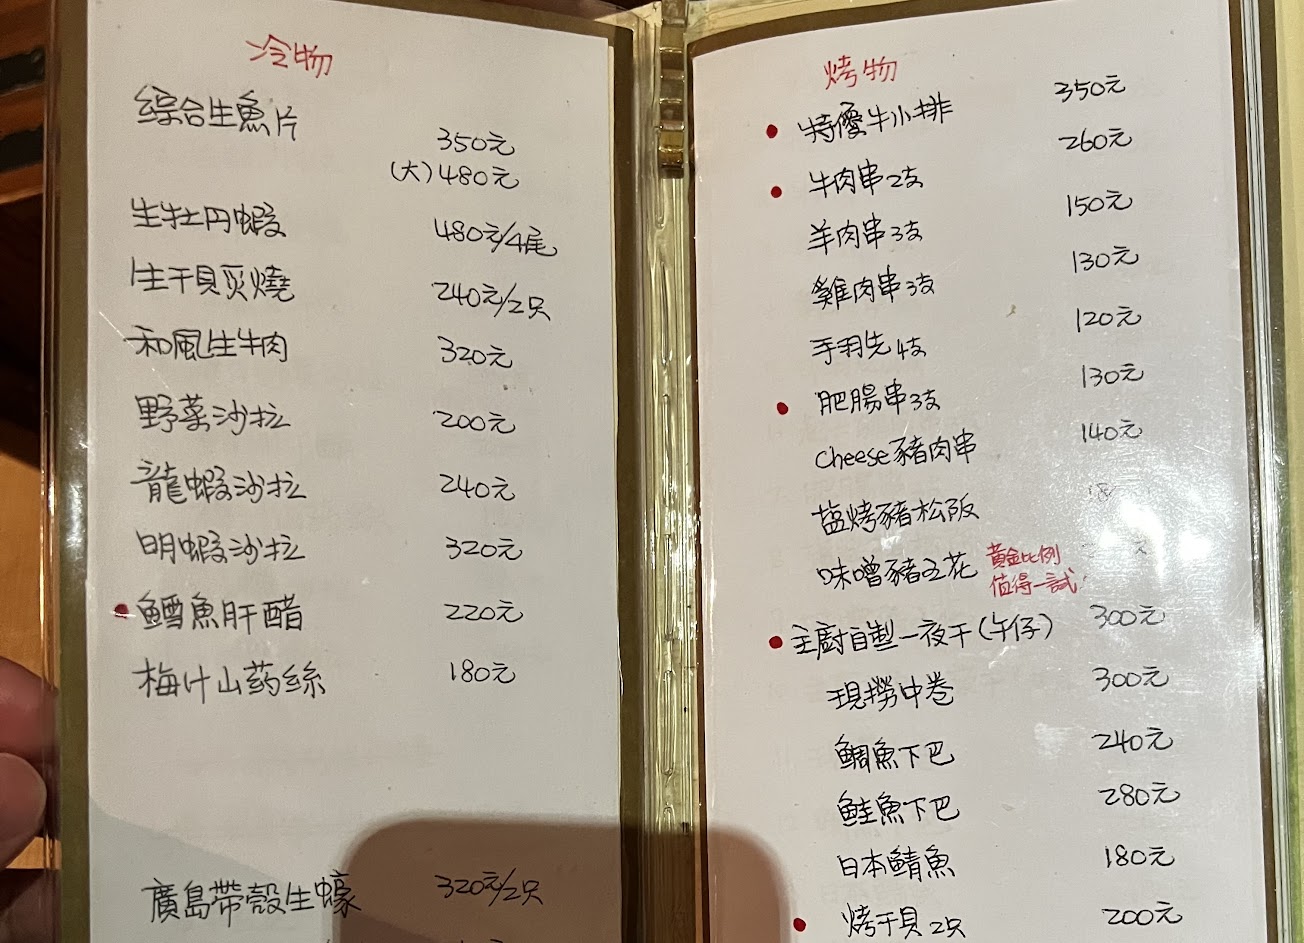 冷物
綜合生魚片 350元
(大)480元
生牡丹蝦 480元/4尾
生干貝炙燒 240元/2只
和風生牛肉 320元
野菜沙拉 200元
龍蝦沙拉 240元
明蝦沙拉 320元
鱈魚肝醋 220元
梅汁山药絲 180元
廣島帶殼生蠔 320元/2只
烤物
特優牛小排 350元
牛肉串2支 260元
羊肉串3支 150元
雞肉串3支 130元
手羽先4支 120元
肥腸串3支 130元
Cheese豬肉串 140元
塩烤豬松阪
味噌豬五花 黃金比例
值得一試!
主廚自製一夜干(午仔) 300元
現撈中卷 300元
鯛魚下巴 240元
鮭魚下巴 280元
日本鯖魚 180元
烤干貝2只 200元